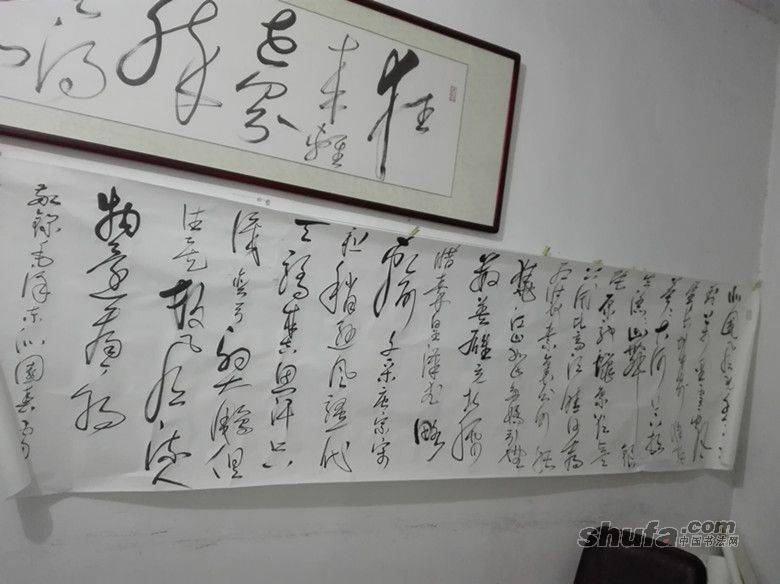 狂
来轻
世界
醉
里得
北国风光千里
大河上下
山舞银
蛇原驰蜡象欲与
天公试比高须晴日看
红装素裹分外妖
娆江山如此多娇引无
数英雄竞折腰
惜秦皇汉武略
输文采唐宗宋
祖稍逊风骚一代
天骄成吉思汗只
识弯弓射大雕俱
往矣数风流人
物还看今朝
敬录毛泽东沁园春雪
shufa.com
中国书法网